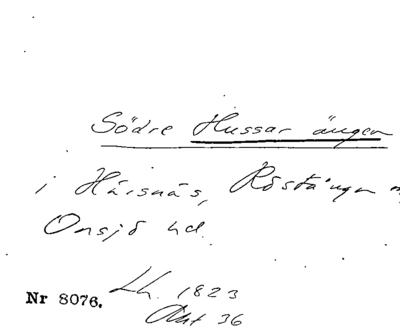 Södre Hussar ängen
i Härsnäs, Röstånga
Onsjö hd.
Lh. 1823
Akt 36
Nr 8076.